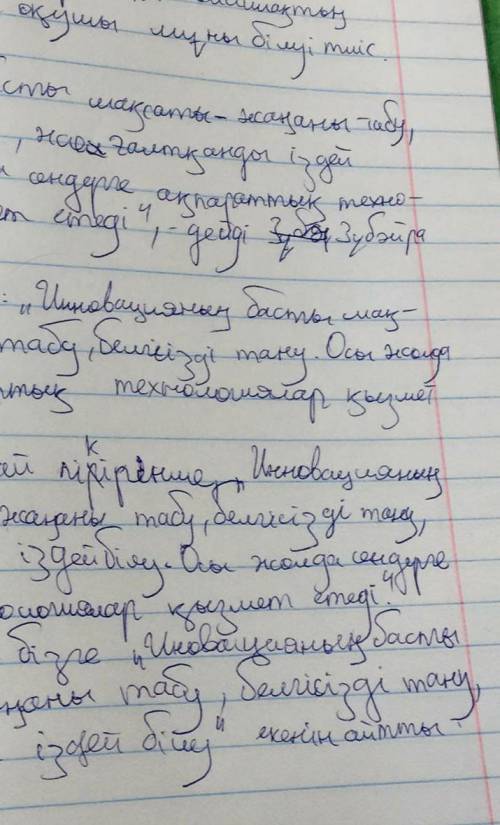 оқушы мұны білуі тиіс.
сты мақсаты - жаңаны табу,
ғалтқанды іздей
сендерге ақпараттық техно-
ет етеді", - дейді Зубәйра
: "Инновацияның басты мақ-
табу, белгісізді тану. Осы жолда
тық технологиялар қызмет
ей пікірінше, "Инновацияның
жаңаны табу, белгісізді тану,
іздей білу. Осы жолда сендерге
ологиялар қызмет етеді."
бізге "Иновацияның басты
ңаны табу, белгісізді тану,
іздей білу" екенін айтты.